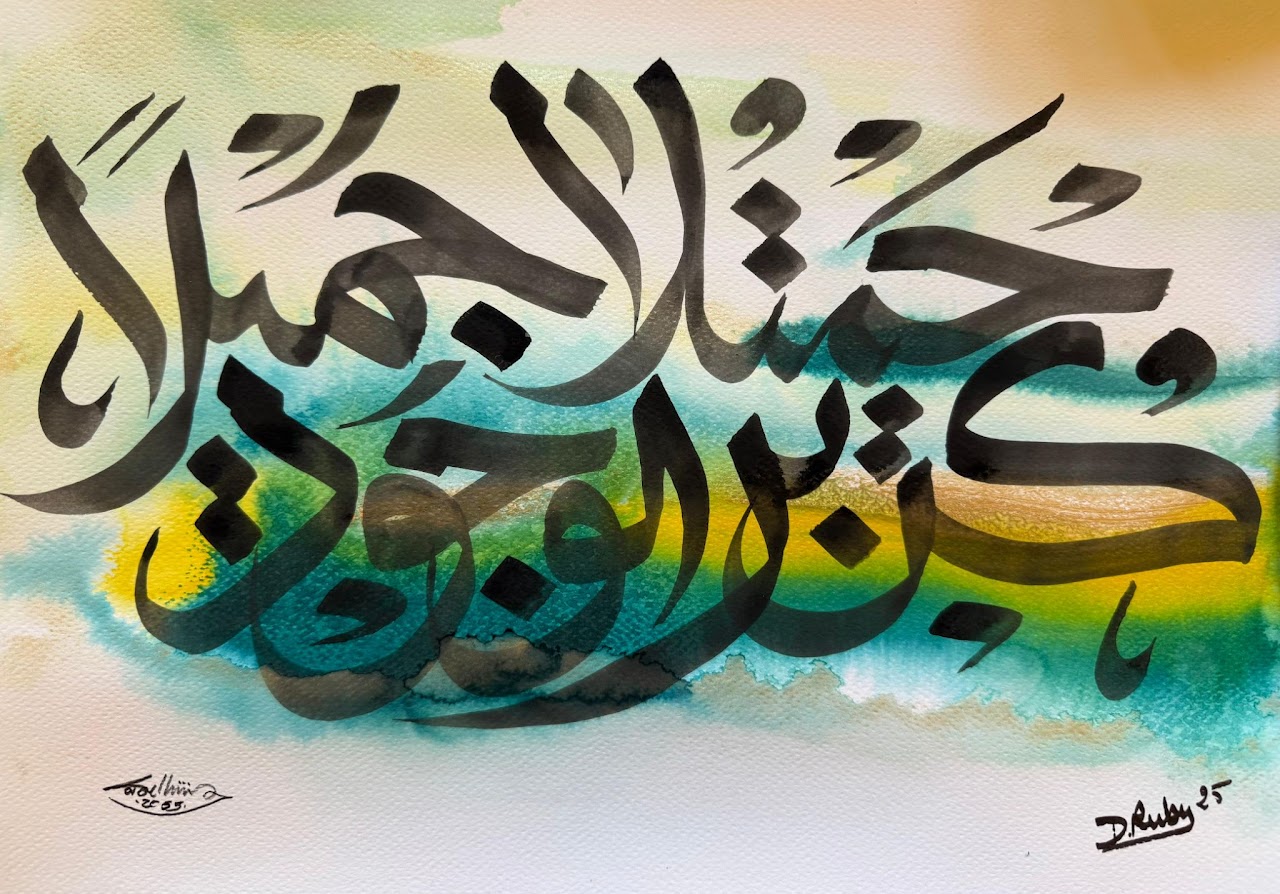 كن جميلا تر الوجود جميلا
D.Ruby 25